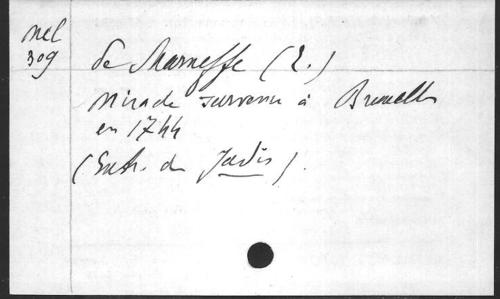 Mel
309
de Marneffe (E.)
Miracle survenu à Bruxelles
en 1744
(Extr. de Jadis).